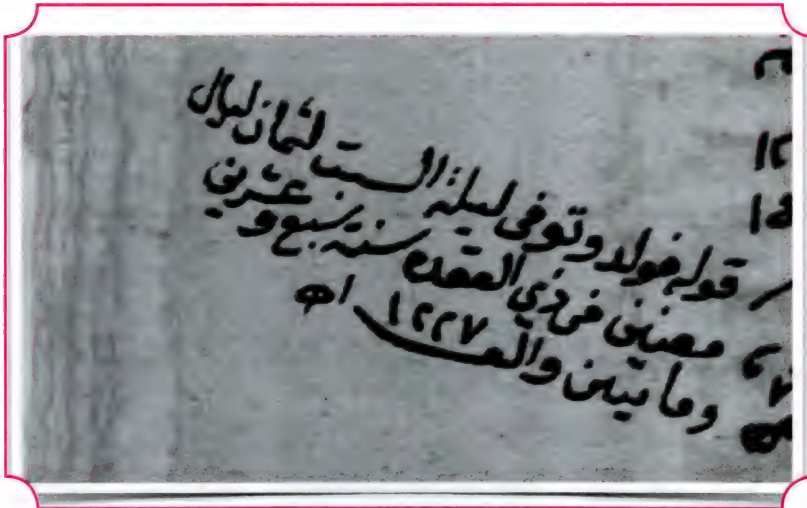 قوله فولد وتوفى ليلة السبت لثمان ليال
مضين من ذي القعدة سنة سبع وعشرين
ومايتين والف ١٢٢٧ اه